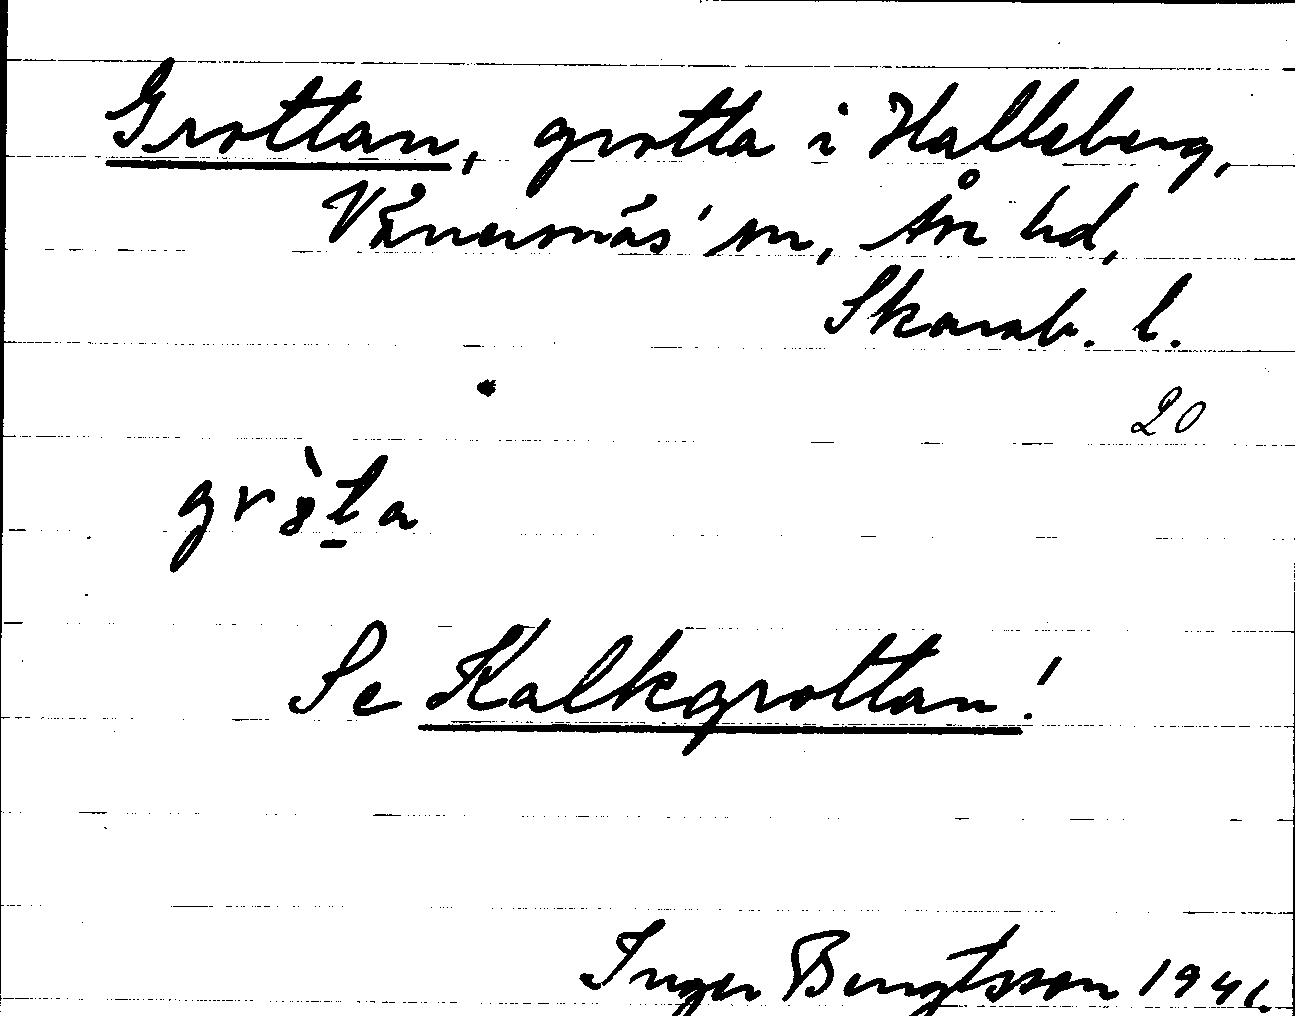 Grottan, grotta i Halleberg,
Vänersnäs' sn, Åse hd,
Skarab. l.
20
gr8̀t̲a
Se Kalkgrottan!
Inger Bengtsson 1941.